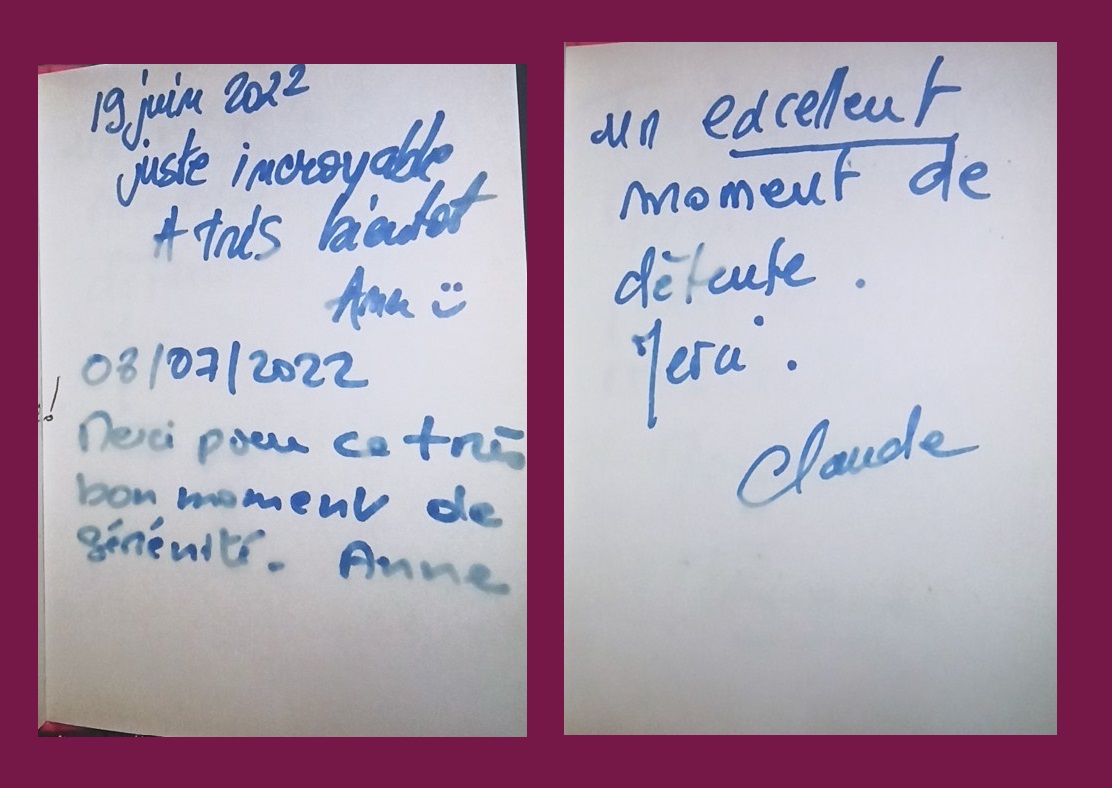 19 juin 2022
juste incroyable
A très bientot
Ann
08/07/2022
Merci pour ce très
bon moment de
sérénité. Anne
un excellent
moment de
détente.
Merci.
Claude